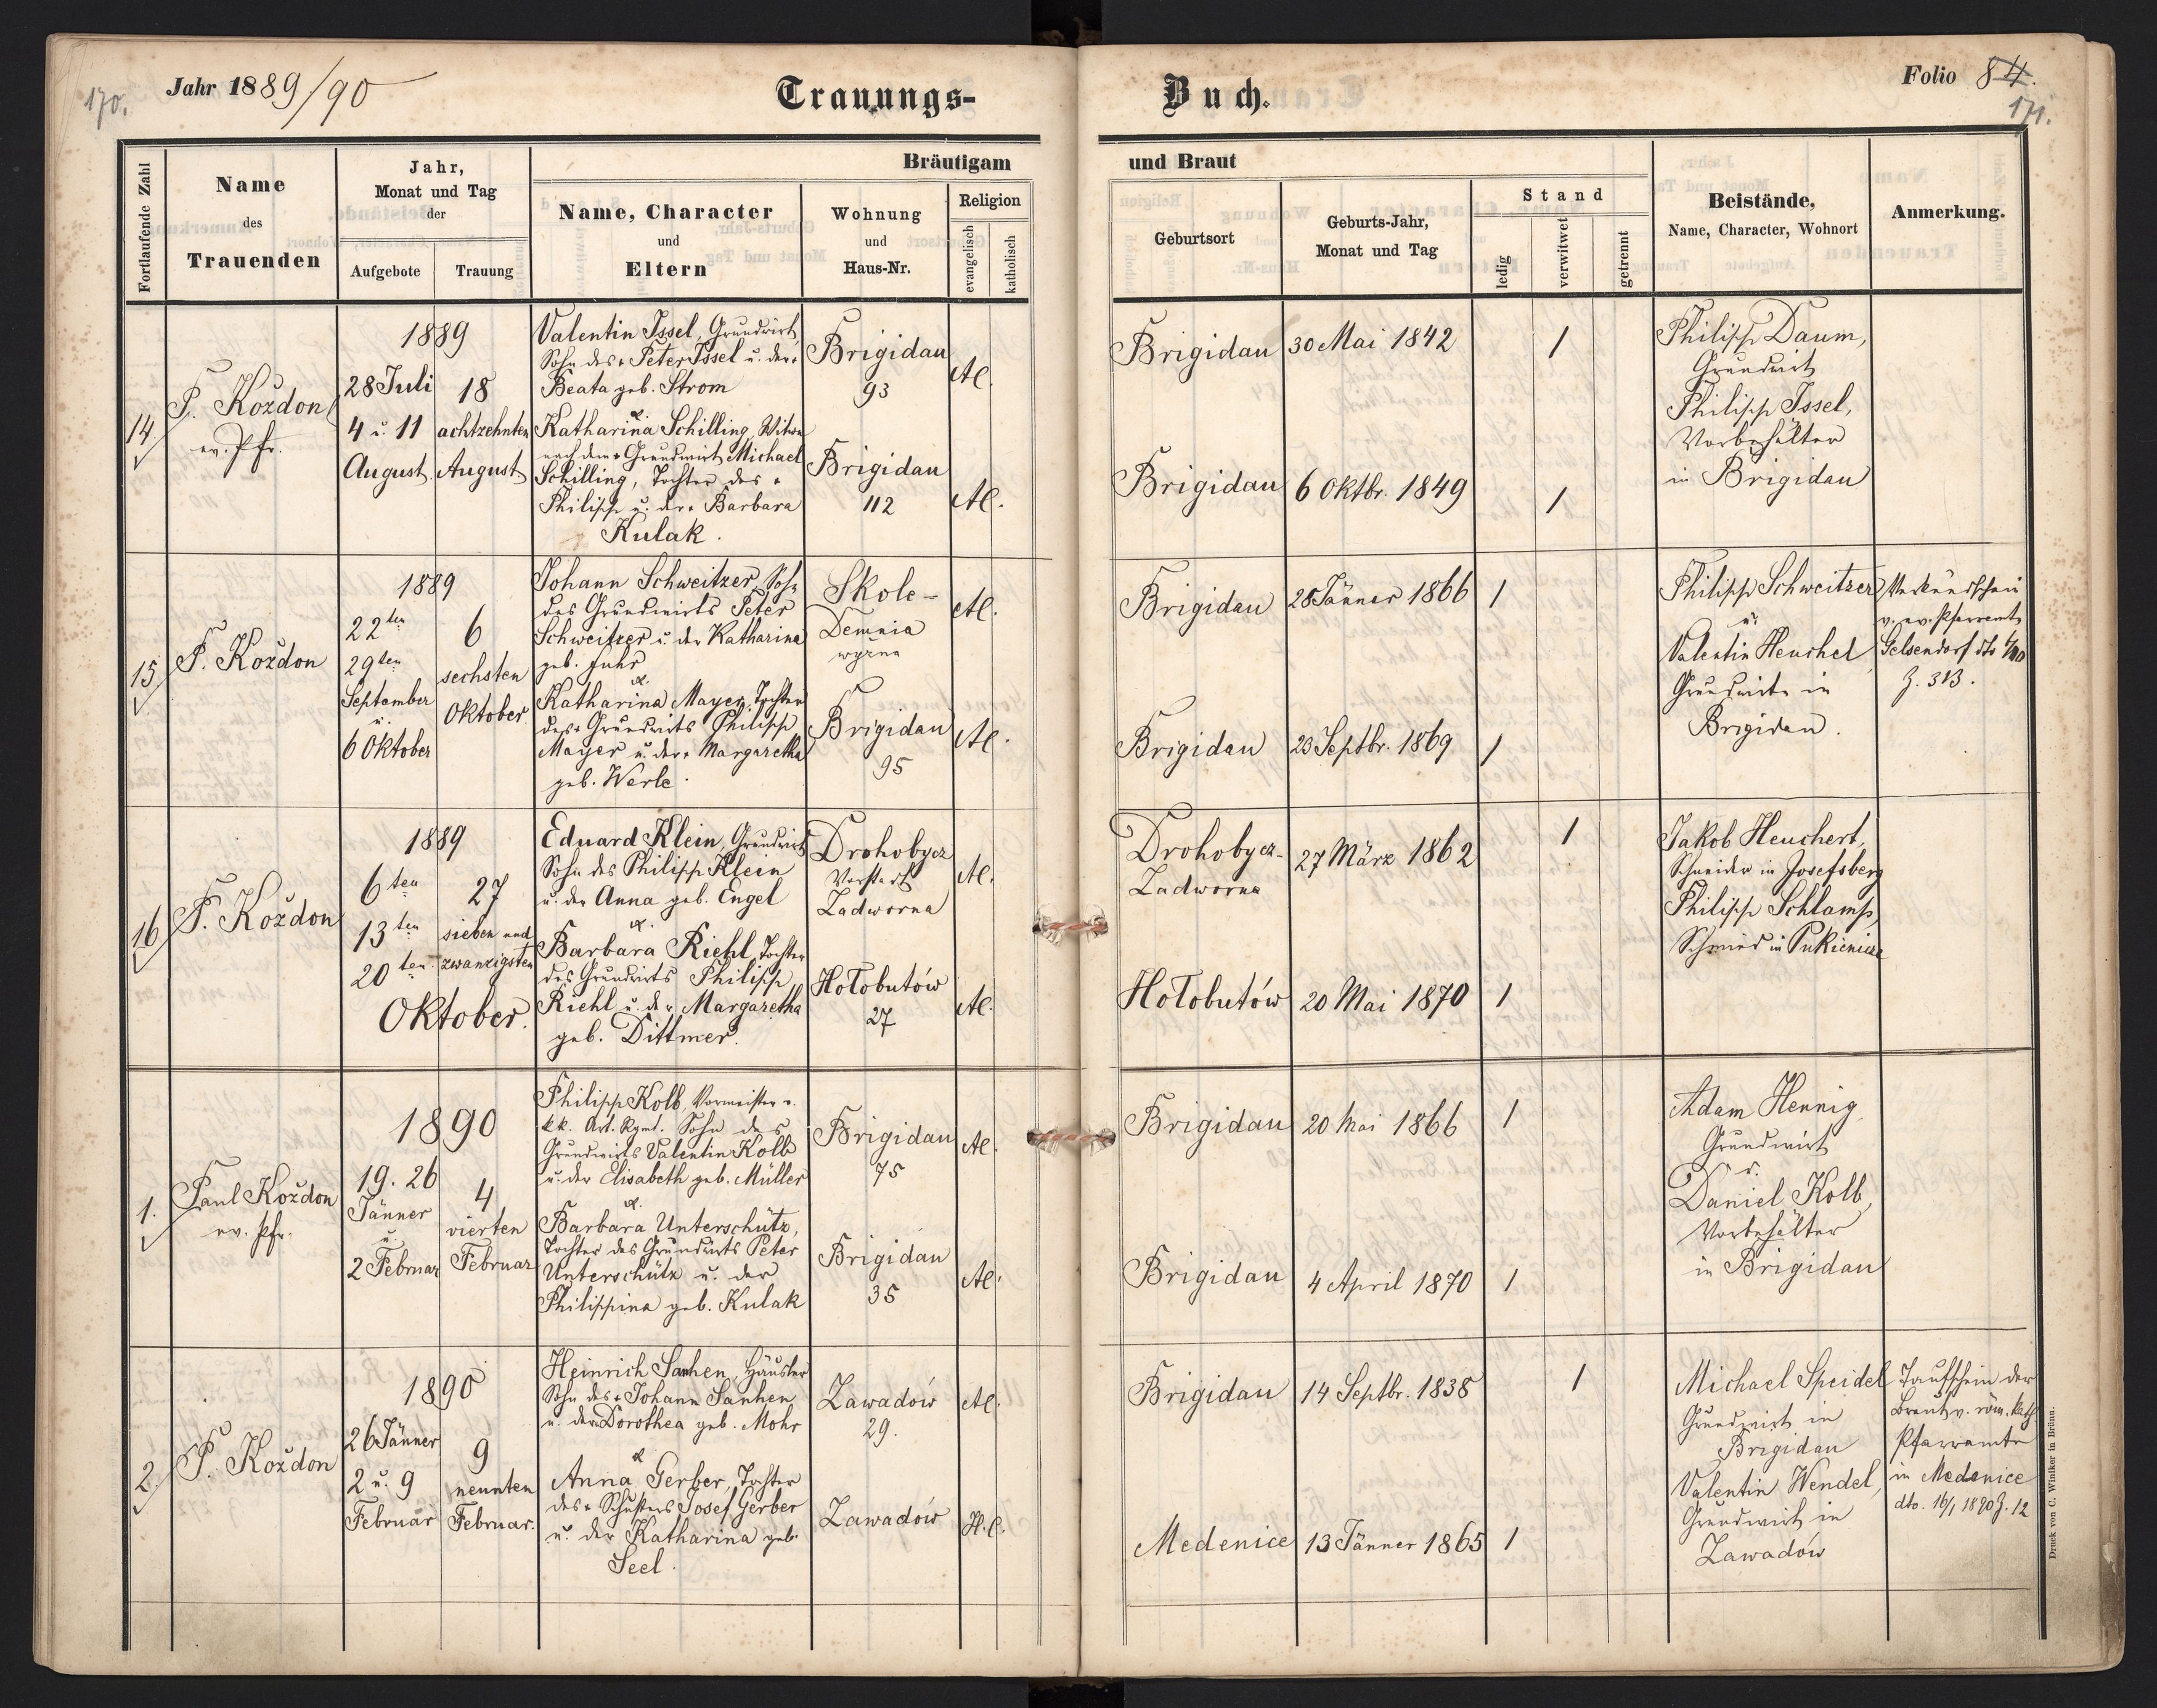 170.
Jahr 1889/90
Trauungs-
Buch.
Folio 84.
171.
Fortlaufende Zahl
Name
des
Trauenden
Jahr,
Monat und Tag
der
Aufgebote
Trauung
Bräutigam
und Braut
Name, Character
und
Eltern
Wohnung
und
Haus-Nr.
Religion
evangelisch
katholisch
Geburtsort
Geburts-Jahr,
Monat und Tag
Stand
ledig
verwitwet
getrennt
Beistände,
Name, Character, Wohnort
Anmerkung.
14.
P. Kożdon
ev. Pfr.
1889
28 Juli
4 u. 11
August.
18
achtzehnten
August
Valentin Issel, Grundwirt,
Sohn des + Peter Issel u. der +
Beata geb. Strom
&
Katharina Schilling, Witwe
nach dem + Grundwirt Michael
Schilling, Tochter des +
Philipp u. der + Barbara
Kulak.
Brigidau
93
Brigidau
112
A.C.
A.C.
Brigidau
30 Mai 1842
1
Brigidau
6 Oktbr. 1849
1
Philipp Daum,
Grundwirt
Philipp Issel,
Vorbehälter
in Brigidau
15.
P. Kożdon
1889
22ten
29ten
September
u.
6 Oktober
6
sechsten
Oktober
Johann Schweitzer, Sohn
des Grundwirts Peter
Schweitzer u. der Katharina
geb. Fuhr
&
Katharina Mayer, Tochter
des + Grundwirts Philipp
Mayer u. der + Margaretha
geb. Werle.
Skole-
Demnia
wyżna
Brigidau
95
A.C.
A.C.
Brigidau
28 Jänner 1866
1
Brigidau
23 Septbr. 1869
1
Philipp Schweitzer
u.
Valentin Heuchel
Grundwirte in
Brigidau.
Verkündschein
v. ev. Pfarramte
Gelsendorf dto
Z. 313.
16.
P. Kożdon
1889
6ten
13ten
20ten
27
sieben und
zwanzigsten
Oktober.
Eduard Klein, Grundwirt
Sohn des Philipp Klein
u. der Anna geb. Engel
&
Barbara Riehl, Tochter
des Grundwirts Philipp
Riehl u. der + Margaretha
geb. Dittmer.
Drohobycz
Vorstadt
Zadworna
Hołobutów
27
A.C.
A.C.
Drohobycz-
Zadworna
27 März 1862
1
Hołobutów
20 Mai 1870
1
Jakob Heuchert,
Schneider in Josefsberg
Philipp Schlamp,
Schmied in Pukienice
1.
Paul Kożdon
ev. Pfr.
1890
19. 26
Jänner
u.
2 Februar
4
vierten
Februar
Philipp Kolb, Vormeister v.
kk. Art. Rgmt. Sohn des
Grundwirts Valentin Kolb
u. der Elisabeth geb. Müller
&
Barbara Unterschütz,
Tochter des Grundwirts Peter
Unterschütz u. der
Philippina geb. Kulak
Brigidau
75
Brigidau
35
A.C.
A.C.
Brigidau
20 Mai 1866
1
Brigidau
4 April 1870
1
Adam Hennig,
Grundwirt
u.
Daniel Kolb,
Vorbehälter
in Brigidau
2.
P. Kożdon
1890
26 Jänner
2 u. 9
Februar
9
neunten
Februar.
Heinrich Sanhen, Häusler
Sohn des + Johann Sanhen
u. der Dorothea geb. Mohr
&
Anna Gerber, Tochter
des + Schusters Josef Gerber
u. der Katharina geb.
Seel.
Zawadów
29.
Zawadów
A.C.
H.C.
Brigidau
14 Septbr. 1838
1
Medenice
13 Jänner 1865
1
Michael Speidel
Grundwirt in
Brigidau
Valentin Wendel,
Grundwirt in
Zawadów
Taufschein der
Braut v. röm. kath.
Pfarramte
in Medenice
dto. 16/1 1890 Z. 12
Druck von C. Winiker in Brünn.